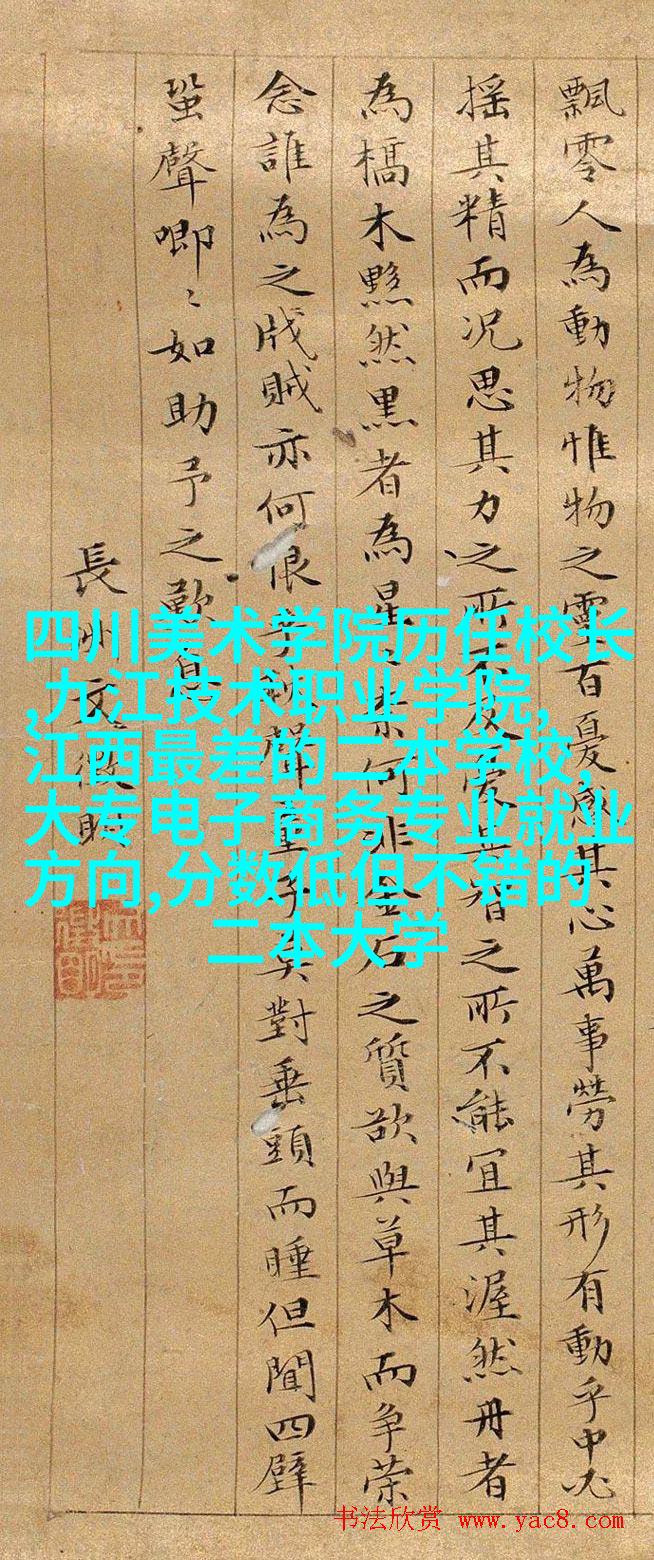 飄零人為動物惟物之靈百憂感其心萬事勞其形有動乎中必
搖其精而況思其力之所不及憂其智之所不能宜其渥然丹者
為槁木黟然黑者為星星奈何非金石之質欲與草木而爭榮
念誰為之戕賊亦何恨乎秋聲童子莫對垂頭而睡但聞四壁
蛩聲唧〻如助予之歎息
長洲文徵明
四川美术学院历任校长
,九江技术职业学院,
江西最差的二本学校,
大专电子商务专业就业
方向,分数低但不错的
二本大学
书法欣赏 www.yac8.com